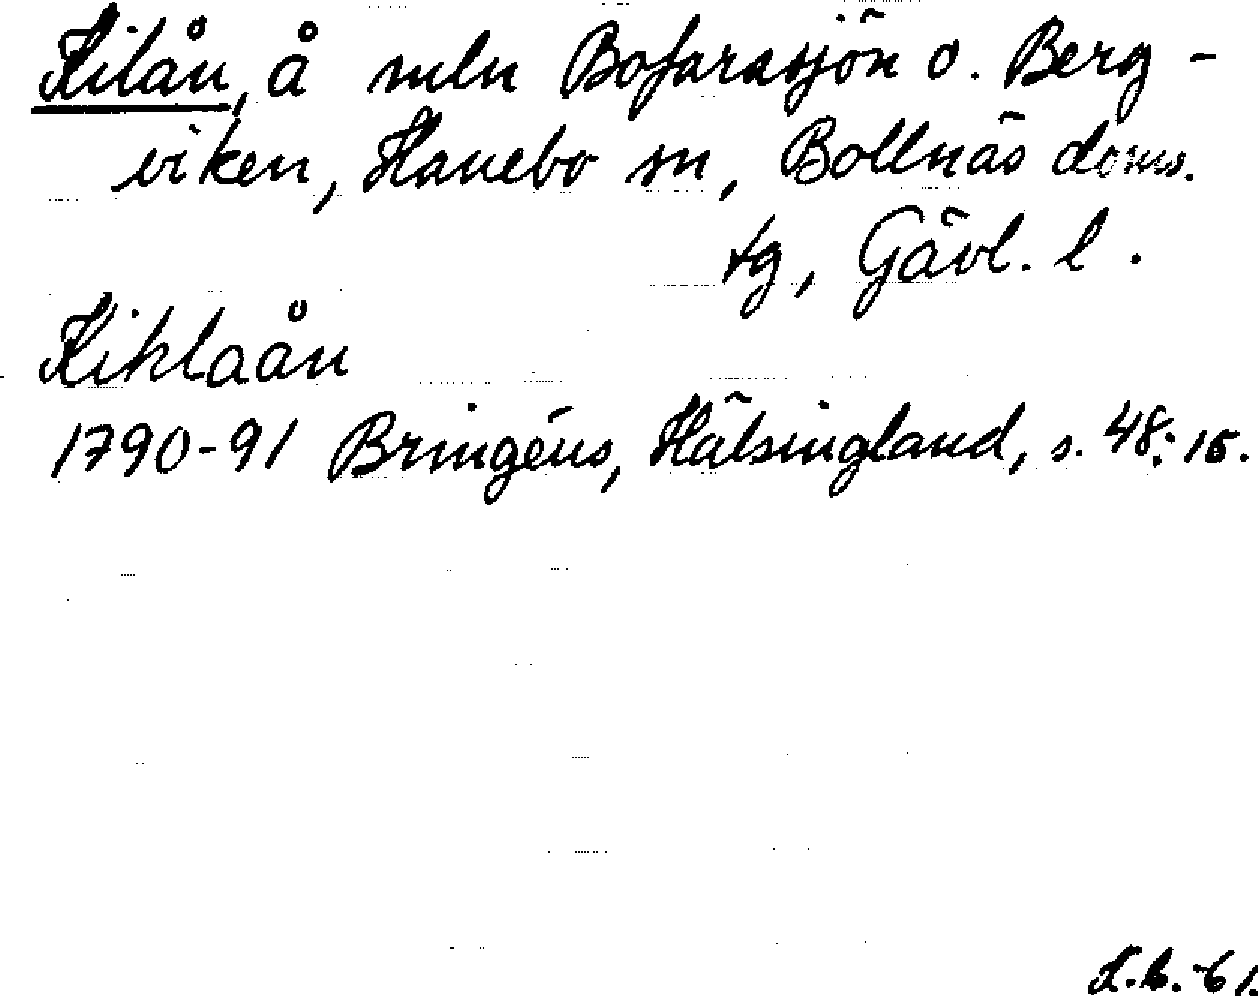 Kilån, å mln Bofarasjön o. Berg-
viken, Hanebo sn, Bollnäs doms.
tg, Gävl. l.
Kihlaån
1790-91 Bringéus, Hälsingland, s. 48: 15.